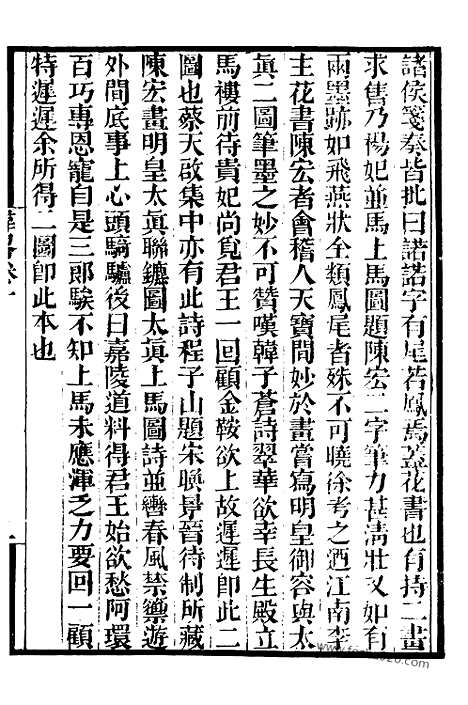 諸侯箋奏皆批曰諾諾字有尾若鳳焉蓋花書也有持二畫
求售乃楊妃並馬上馬圖題陳宏二字筆力甚清壯又如有
兩墨跡如飛燕狀全類鳳尾者殊不可曉徐考之迺江南李
主花書陳宏者會稽人天寶間妙於畫嘗寫明皇御容與太
眞二圖筆墨之妙不可贊嘆韓子蒼詩翠華欲幸長生殿立
馬樓前待貴妃尚覓君王一回顧金鞍欲上故遲遲卽此二
圖也蔡天啟集中亦有此詩程子山題宋晚景晉待制所藏
陳宏畫明皇太眞聯鑣圖太眞上馬圖詩並轡春風禁籞遊
外間底事上心頭騎驢後日嘉陵道料得君王始欲愁阿環
百巧專恩寵自是三郎騃不知上馬未應渾乏力要回一顧
特遲遲余所得二圖卽此本也